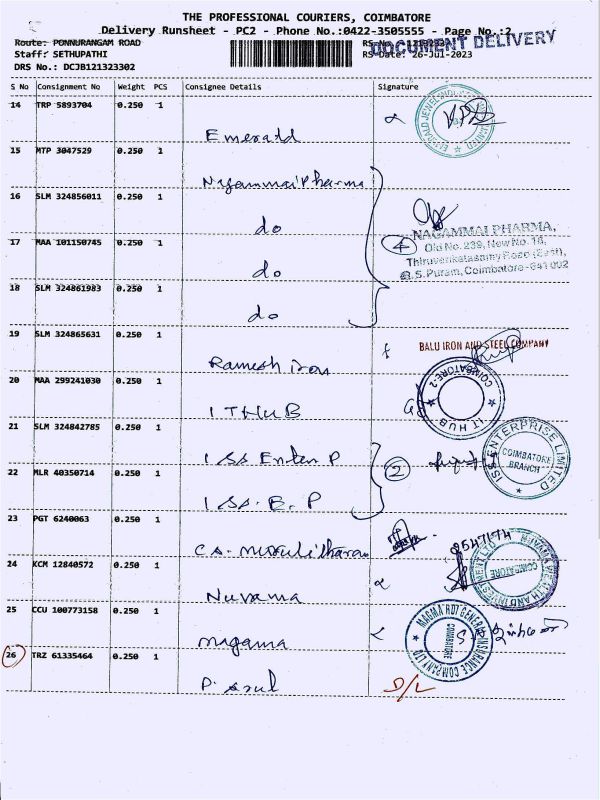 THE PROFESSIONAL COURIERS, COIMBATORE
Delivery Runsheet - PC2 - Phone No.:0422-3505555 - Page No.:2
Route: PONNURANGAM ROAD
DOCUMENT DELIVERY
Staff: SETHUPATHI RS Date: 26-Jul-2023
DRS No.: DCJB121323302
S No Consignment No Weight PCS Consignee Details Signature
14 TRP 5893704 0.250 1
Emerald
15 MTP 3047529 0.250 1
Nagammai Pharma
16 SLM 324856011 0.250 1
do
NAGAMMAI PHARMA,
17 MAA 101150745 0.250 1
4
Old No. 239, New No. 18,
Thiruvenkatasamy Road (East),
do
R.S. Puram, Coimbatore-641 002
18 SLM 324861983 0.250 1
do
19 SLM 324865631 0.250 1
BALU IRON AND STEEL COMPANY
Ramesh iron
20 MAA 299241030 0.250 1
COIMBATORE-2
IT HUB
IT HUB
21 SLM 324842785 0.250 1
ISS ENTERPRISE LIMITED
COIMBATORE
BRANCH
ISS Enter P
2
22 MLR 40350714 0.250 1
ISS. E. P
23 PGT 6240063 0.250 1
CA. Muralitharan
24 KCM 12840572 0.250 1
COIMBATORE
Nuvama
25 CCU 100773158 0.250 1
MAGMA HDI GENERAL INSURANCE COMPANY LTD
COIMBATORE
magama
26 TRZ 61335464 0.250 1
P. Arul
D/L